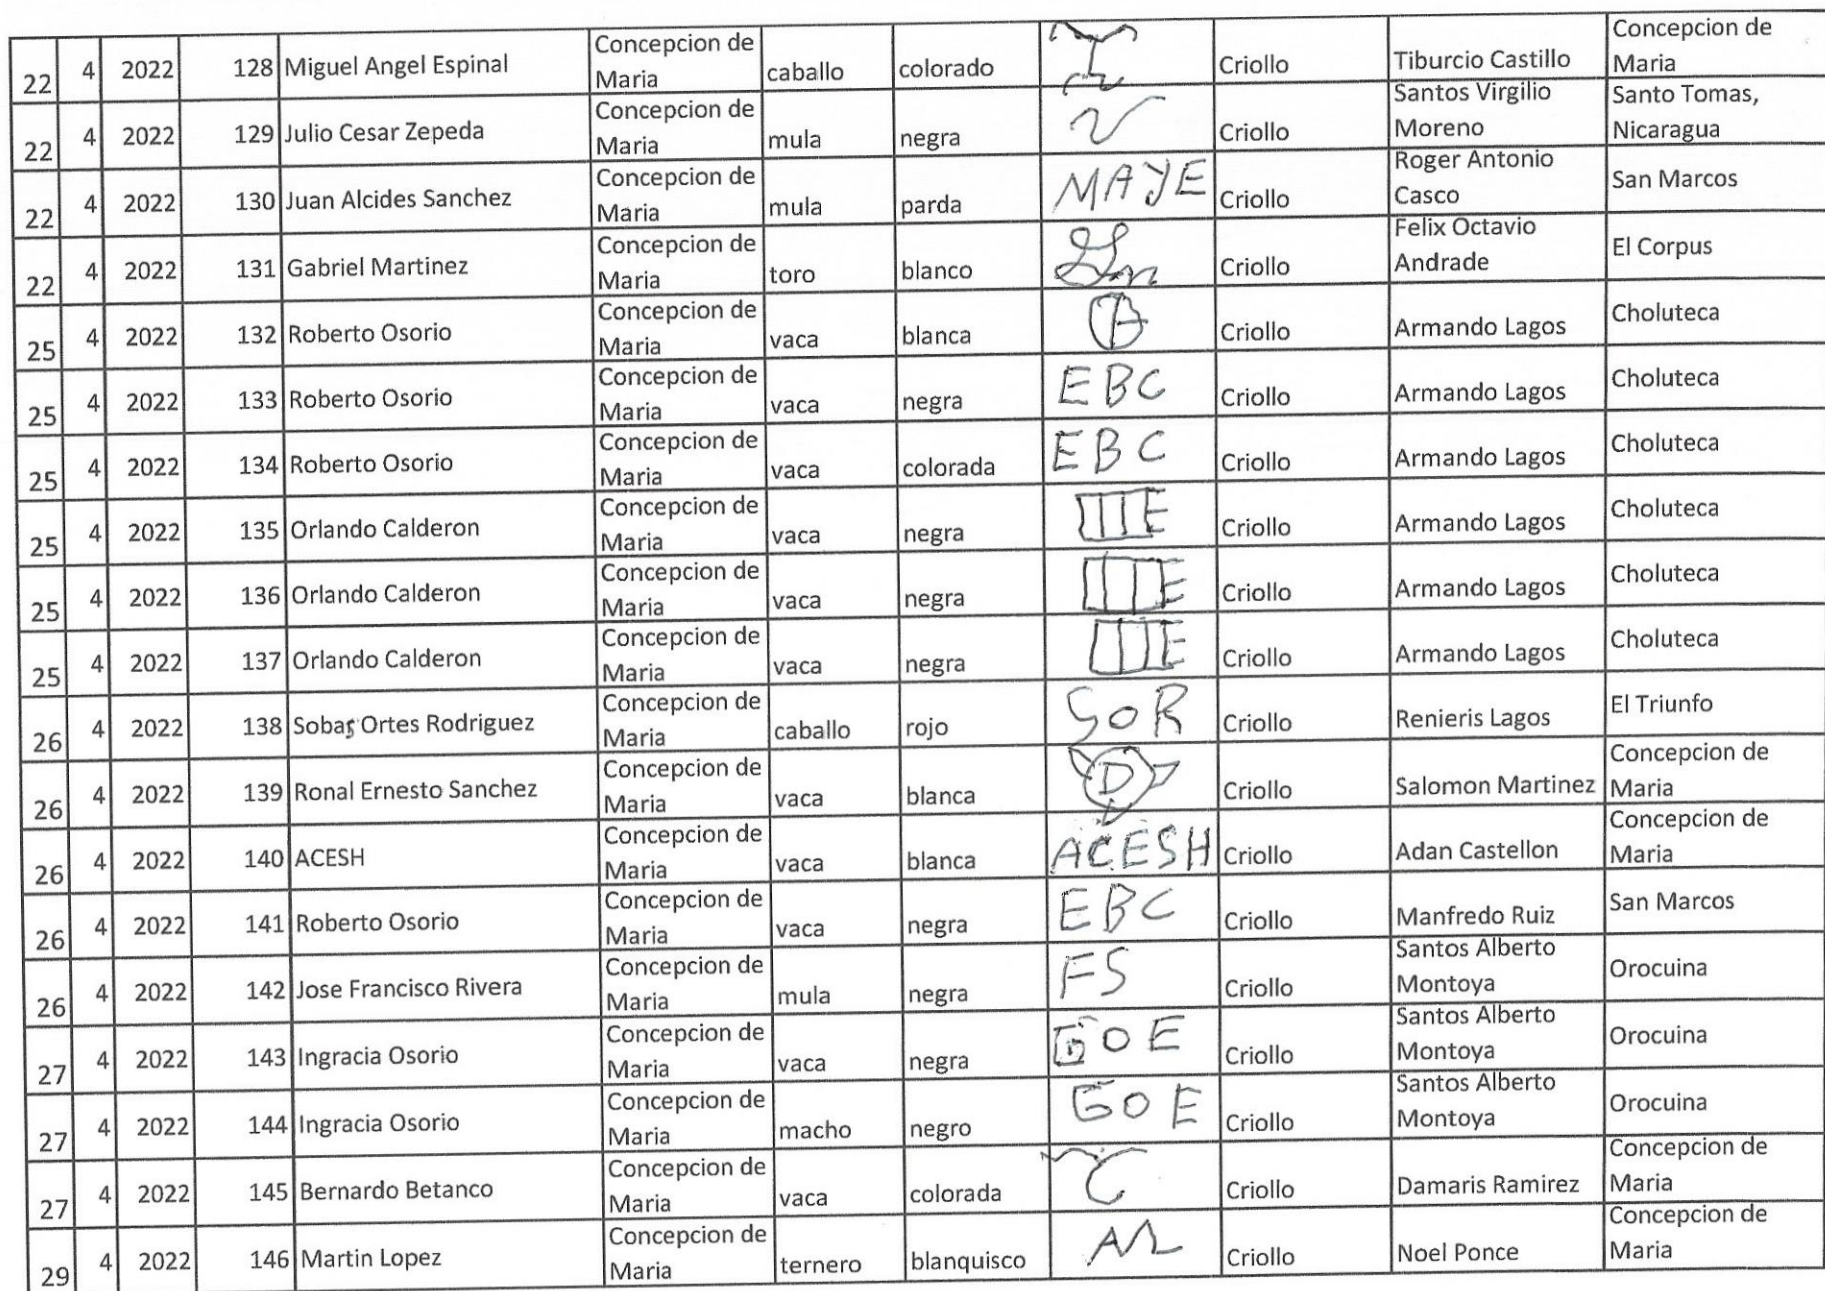 22 4 2022 128 Miguel Angel Espinal Concepcion de Maria caballo colorado Criollo Tiburcio Castillo Concepcion de Maria
22 4 2022 129 Julio Cesar Zepeda Concepcion de Maria mula negra Criollo Santos Virgilio Moreno Santo Tomas, Nicaragua
22 4 2022 130 Juan Alcides Sanchez Concepcion de Maria mula parda MAYE Criollo Roger Antonio Casco San Marcos
22 4 2022 131 Gabriel Martinez Concepcion de Maria toro blanco Criollo Felix Octavio Andrade El Corpus
25 4 2022 132 Roberto Osorio Concepcion de Maria vaca blanca Criollo Armando Lagos Choluteca
25 4 2022 133 Roberto Osorio Concepcion de Maria vaca negra EBC Criollo Armando Lagos Choluteca
25 4 2022 134 Roberto Osorio Concepcion de Maria vaca colorada EBC Criollo Armando Lagos Choluteca
25 4 2022 135 Orlando Calderon Concepcion de Maria vaca negra Criollo Armando Lagos Choluteca
25 4 2022 136 Orlando Calderon Concepcion de Maria vaca negra Criollo Armando Lagos Choluteca
25 4 2022 137 Orlando Calderon Concepcion de Maria vaca negra Criollo Armando Lagos Choluteca
26 4 2022 138 Sobas Ortes Rodriguez Concepcion de Maria caballo rojo SOR Criollo Renieris Lagos El Triunfo
26 4 2022 139 Ronal Ernesto Sanchez Concepcion de Maria vaca blanca D Criollo Salomon Martinez Concepcion de Maria
26 4 2022 140 ACESH Concepcion de Maria vaca blanca ACESH Criollo Adan Castellon Concepcion de Maria
26 4 2022 141 Roberto Osorio Concepcion de Maria vaca negra EBC Criollo Manfredo Ruiz San Marcos
26 4 2022 142 Jose Francisco Rivera Concepcion de Maria mula negra FS Criollo Santos Alberto Montoya Orocuina
27 4 2022 143 Ingracia Osorio Concepcion de Maria vaca negra GOE Criollo Santos Alberto Montoya Orocuina
27 4 2022 144 Ingracia Osorio Concepcion de Maria macho negro GOE Criollo Santos Alberto Montoya Orocuina
27 4 2022 145 Bernardo Betanco Concepcion de Maria vaca colorada Criollo Damaris Ramirez Concepcion de Maria
29 4 2022 146 Martin Lopez Concepcion de Maria ternero blanquisco Criollo Noel Ponce Concepcion de Maria